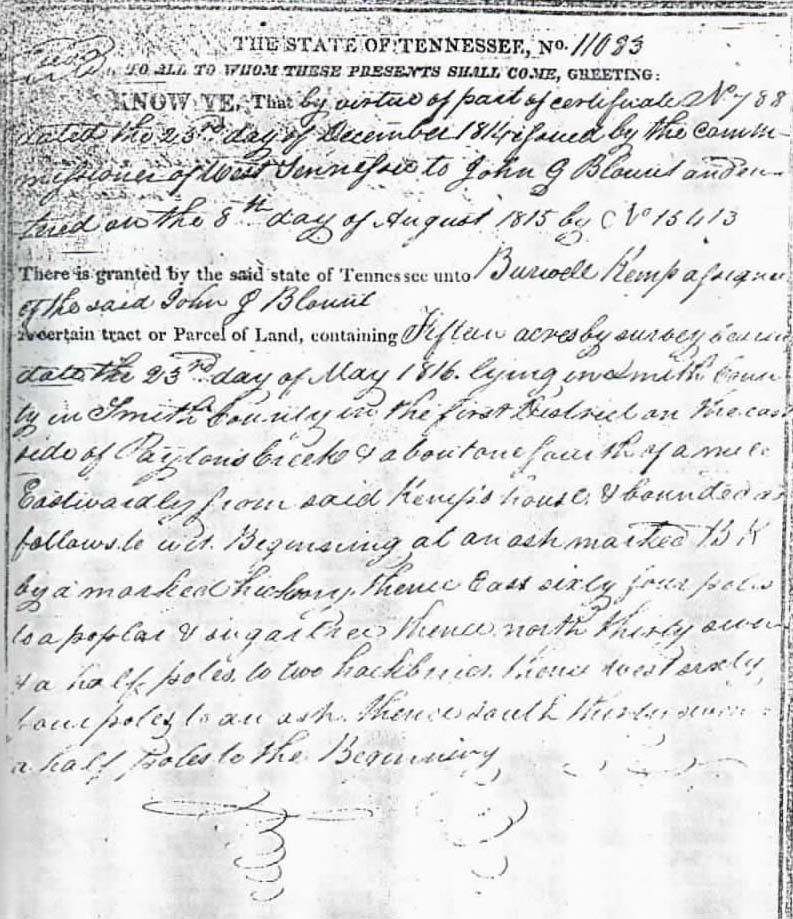 THE STATE OF TENNESSEE, No. 11083
TO ALL TO WHOM THESE PRESENTS SHALL COME, GREETING:
KNOW YE, That by virtue of part of certificate No 788
dated the 23rd day of December 1814 issued by the comm-
missioner of West Tennessee to John G Blount and en-
tered on the 8th day of August 1815 by No 15413
There is granted by the said state of Tennessee unto Burwell Kemp assignee
of the said John G Blount
a certain tract or Parcel of Land, containing Fifteen acres by survey bearing
date the 23rd day of May 1816. lying in Smith Coun
ty in Smith County in the first District on the east
side of Paytons Creek & about one fourth of a mile
Eastwardly from said Kemp's house. & bounded as
follows. to wit. Beginning at an ash marked B K
by a marked hickory, thence East sixty four poles
to a poplar & sugar tree thence north thirty seven
& a half poles. to two hackberries. thence west sixty
four poles to an ash. thence south thirty seven
a half poles to the Beginning